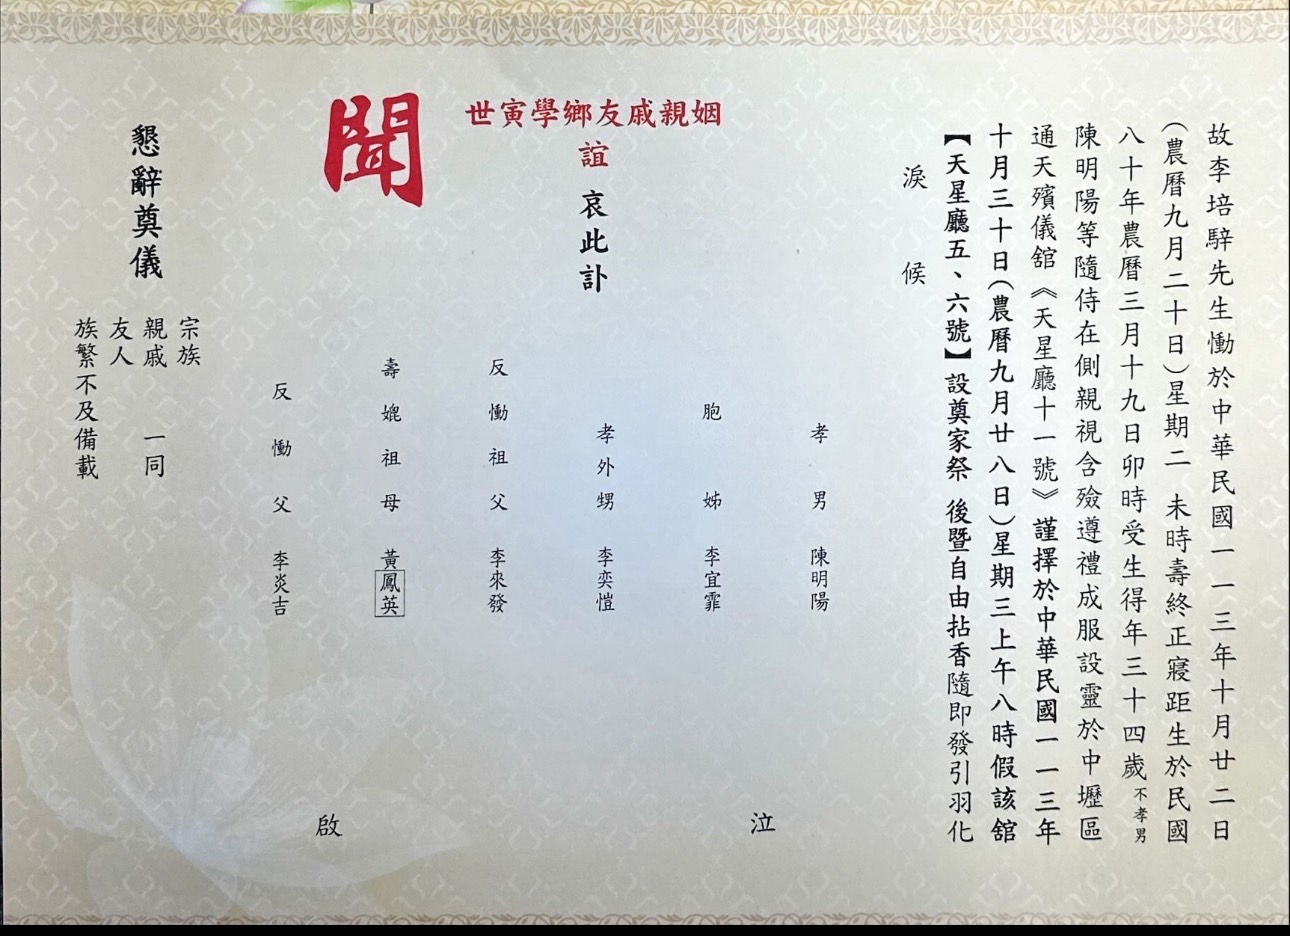 故李培騂先生慟於中華民國一一三年十月廿二日
(農曆九月二十日)星期二 未時壽終正寢距生於民國
八十年農曆三月十九日卯時受生得年三十四歲不孝男
陳明陽等隨侍在側親視含殮遵禮成服設靈於中壢區
通天殯儀舘《天星廳十一號》謹擇於中華民國一一三年
十月三十日(農曆九月廿八日)星期三上午八時假該舘
【天星廳五、六號】設奠家祭 後暨自由拈香隨即發引羽化
淚候
孝男 陳明陽
泣
姻親戚友鄉學寅世
誼 哀此訃
胞姊 李宜霏
孝外甥 李奕愷
反慟祖父 李來發
壽媲祖母 黃鳳英
聞
反慟父 李炎吉
啟
宗族
親戚 一同
友人
族繁不及備載
懇辭奠儀